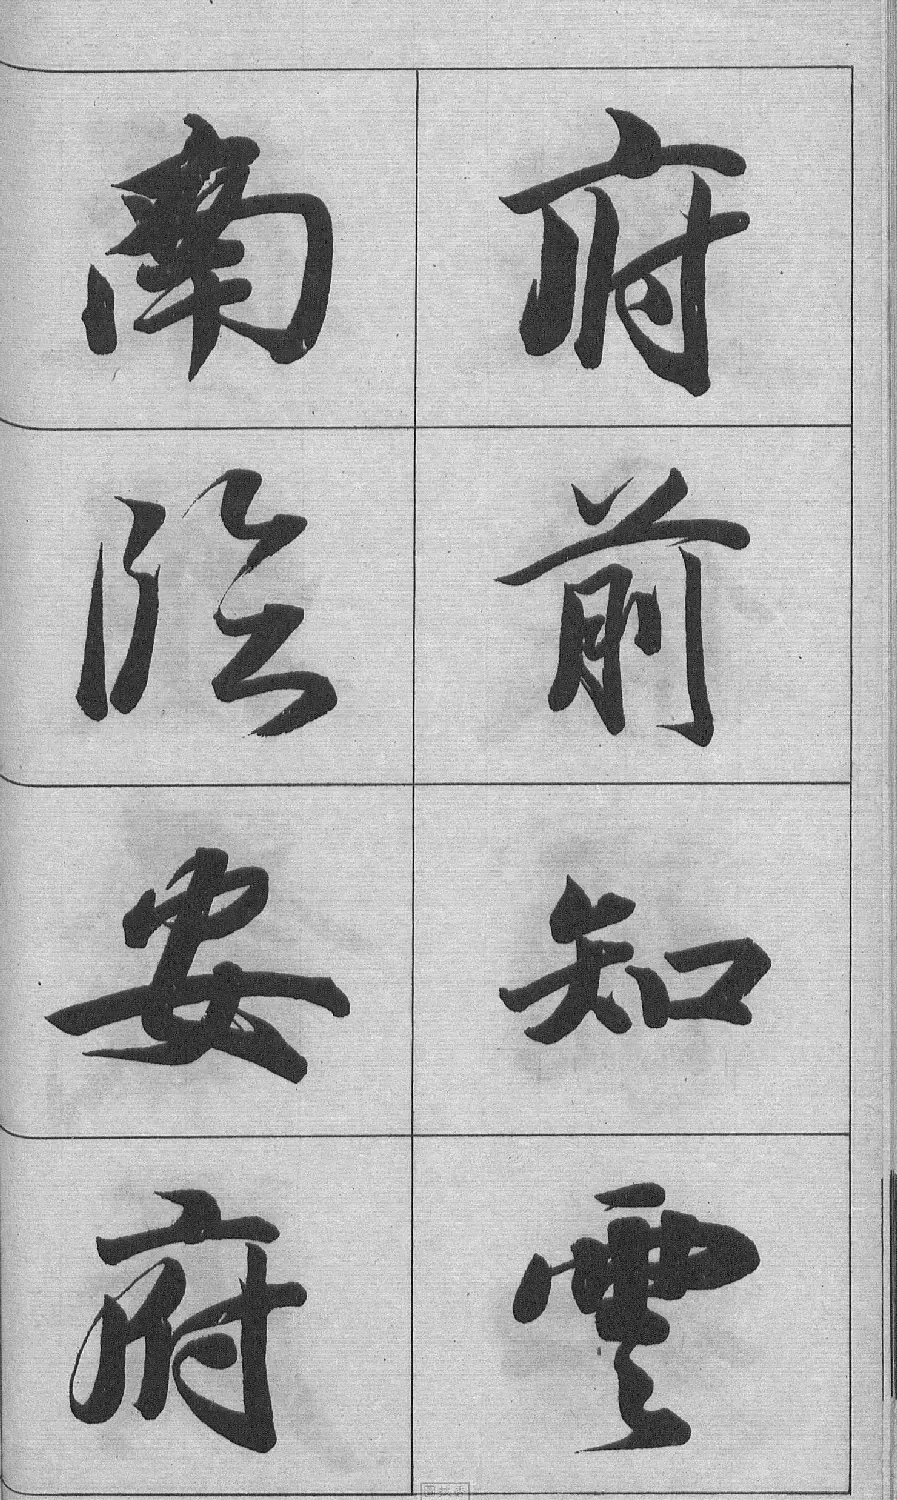 府前知雲
南臨安府